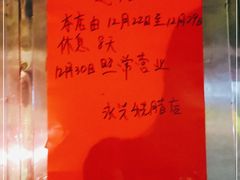 本店由12月22日至12月29日
休息8天
12月30日照常营业
永兴烧腊店